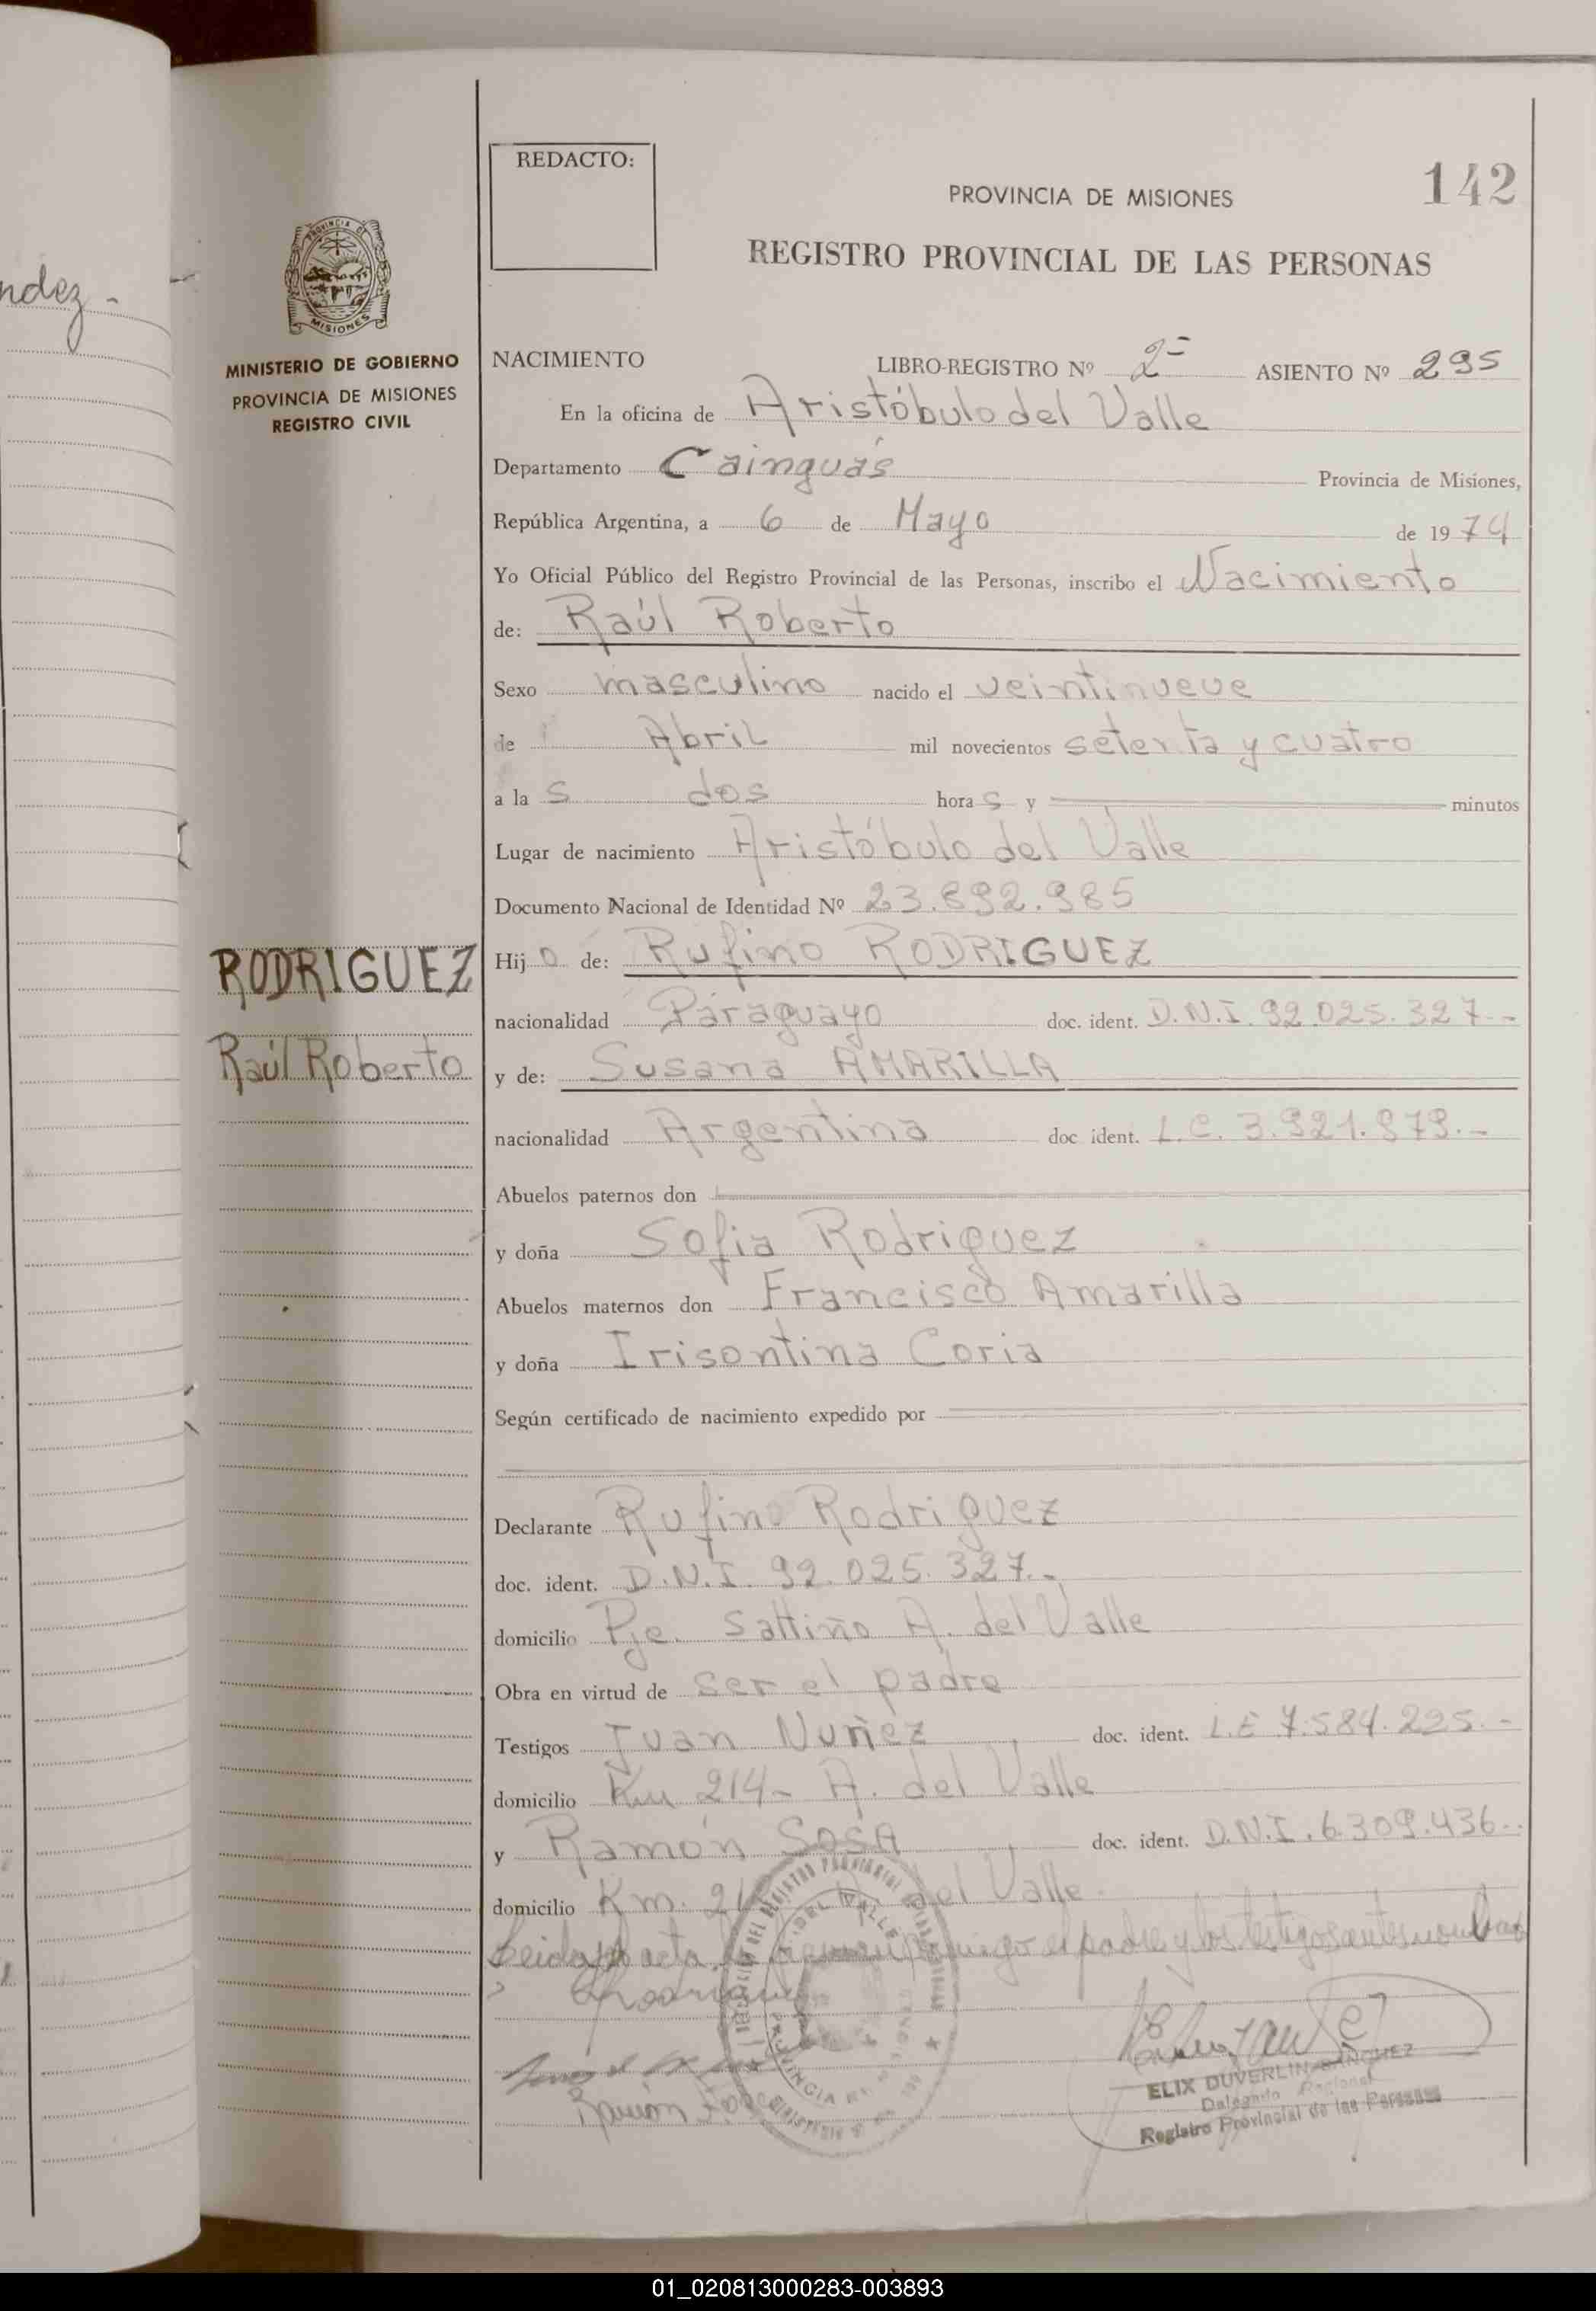 ndez -
REDACTO:
142
PROVINCIA DE MISIONES
REGISTRO PROVINCIAL DE LAS PERSONAS
PROVINCIA DE
MISIONES
MINISTERIO DE GOBIERNO
PROVINCIA DE MISIONES
REGISTRO CIVIL
NACIMIENTO LIBRO-REGISTRO Nº 2- ASIENTO Nº 295
En la oficina de Aristóbulo del Valle
Departamento Cainguás Provincia de Misiones,
República Argentina, a 6 de Mayo de 1974
Yo Oficial Público del Registro Provincial de las Personas, inscribo el Nacimiento
de: Raúl Roberto
Sexo masculino nacido el veintinueve
de Abril mil novecientos setenta y cuatro
a la s dos hora s y minutos
Lugar de nacimiento Aristóbulo del Valle
Documento Nacional de Identidad Nº 23.892.985
RODRIGUEZ
Raúl Roberto
Hijo de: Rufino RODRIGUEZ
nacionalidad Paraguayo doc. ident. D.N.I. 92.025.327.-
y de: Susana AMARILLA
nacionalidad Argentina doc ident. L.C. 3.921.979.-
Abuelos paternos don
y doña Sofia Rodriguez
Abuelos maternos don Francisco Amarilla
y doña Irisontina Coria
Según certificado de nacimiento expedido por
Declarante Rufino Rodriguez
doc. ident. D.N.I. 92.025.327.-
domicilio Pje. Saltiño A. del Valle
Obra en virtud de ser el padre
Testigos Juan Nuñez doc. ident. L.E 7.584.225.-
domicilio Km 214- A. del Valle
y Ramón SOSA doc. ident. D.N.I. 6.309.436.-
domicilio Km. del Valle
Leida el acta, la firman conmigo el padre y los testigos antes nombrad
ELIX DUVERLIN SANCHEZ
Delegado Regional
Registro Provincial de las Personas
Ramón Sosa
01_020813000283-003893